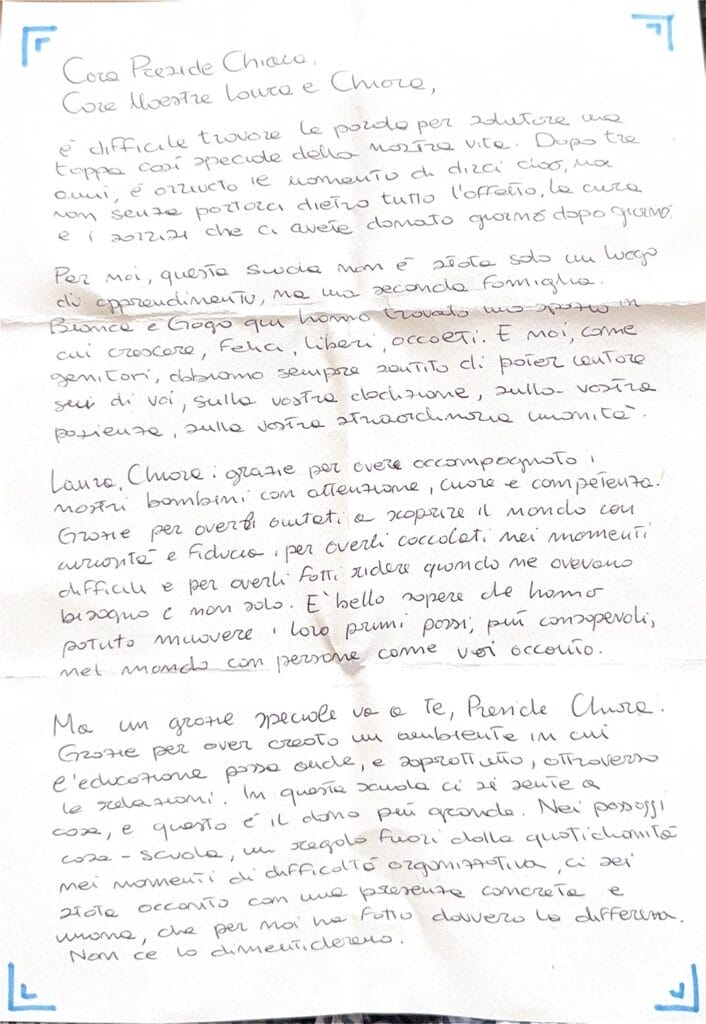 Cara Preside Chiara,
Care Maestre Laura e Chiara,
è difficile trovare le parole per salutare una
tappa così speciale della nostra vita. Dopo tre
anni, è arrivato il momento di dirci ciao, ma
non senza portarci dietro tutto l'affetto, la cura
e i sorrisi che ci avete donato giorno dopo giorno.
Per noi, questa scuola non è stata solo un luogo
di apprendimento, ma una seconda famiglia.
Bianca e Gogo qui hanno trovato uno spazio in
cui crescere, felici, liberi, accolti. E noi, come
genitori, abbiamo sempre sentito di poter contare
su di voi, sulla vostra dedizione, sulla vostra
pazienza, sulla vostra straordinaria umanità.
Laura, Chiara: grazie per avere accompagnato i
nostri bambini con attenzione, cuore e competenza.
Grazie per averli aiutati a scoprire il mondo con
curiosità e fiducia, per averli coccolati nei momenti
difficili e per averli fatti ridere quando ne avevano
bisogno e non solo. E' bello sapere che hanno
potuto muovere i loro primi passi, più consapevoli,
nel mondo con persone come voi accanto.
Ma un grazie speciale va a te, Preside Chiara.
Grazie per aver creato un ambiente in cui
l'educazione passa anche, e soprattutto, attraverso
le relazioni. In questa scuola ci si sente a
casa, e questo è il dono più grande. Nei passaggi
casa-scuola, un regalo fuori dalla quotidianità
nei momenti di difficoltà organizzativa, ci sei
stata accanto con una presenza concreta e
umana, che per noi ha fatto davvero la differenza.
Non ce lo dimenticheremo.